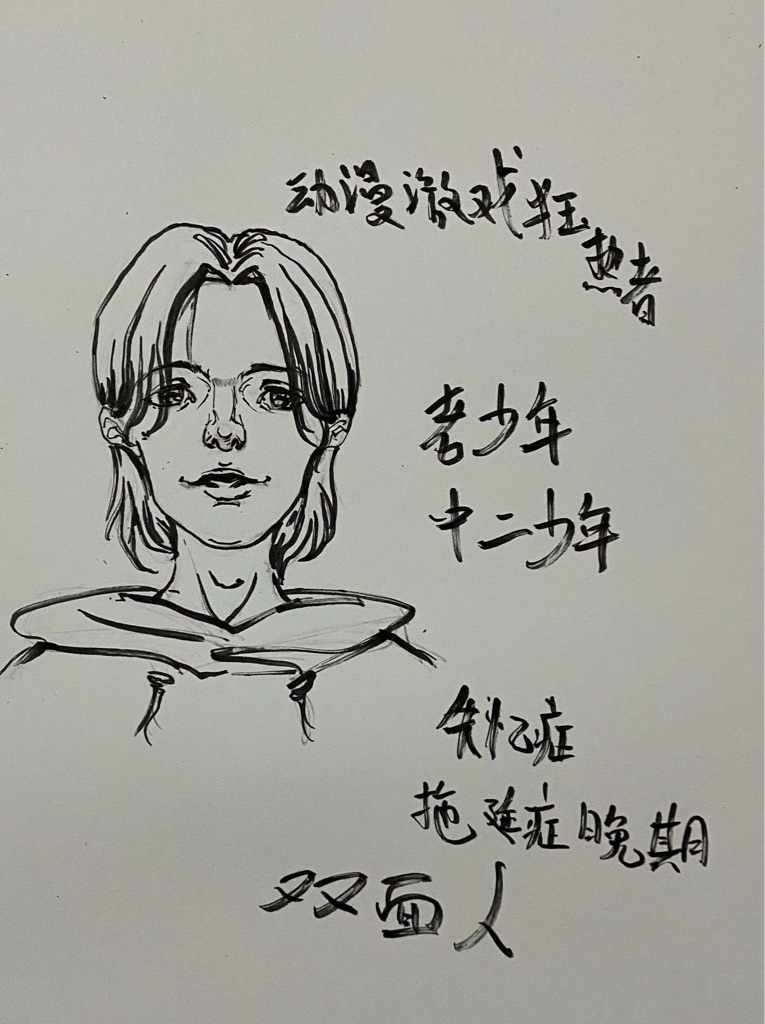 动漫激戏狂热者
老少年
中二少年
失忆症
拖延症晚期
双面人